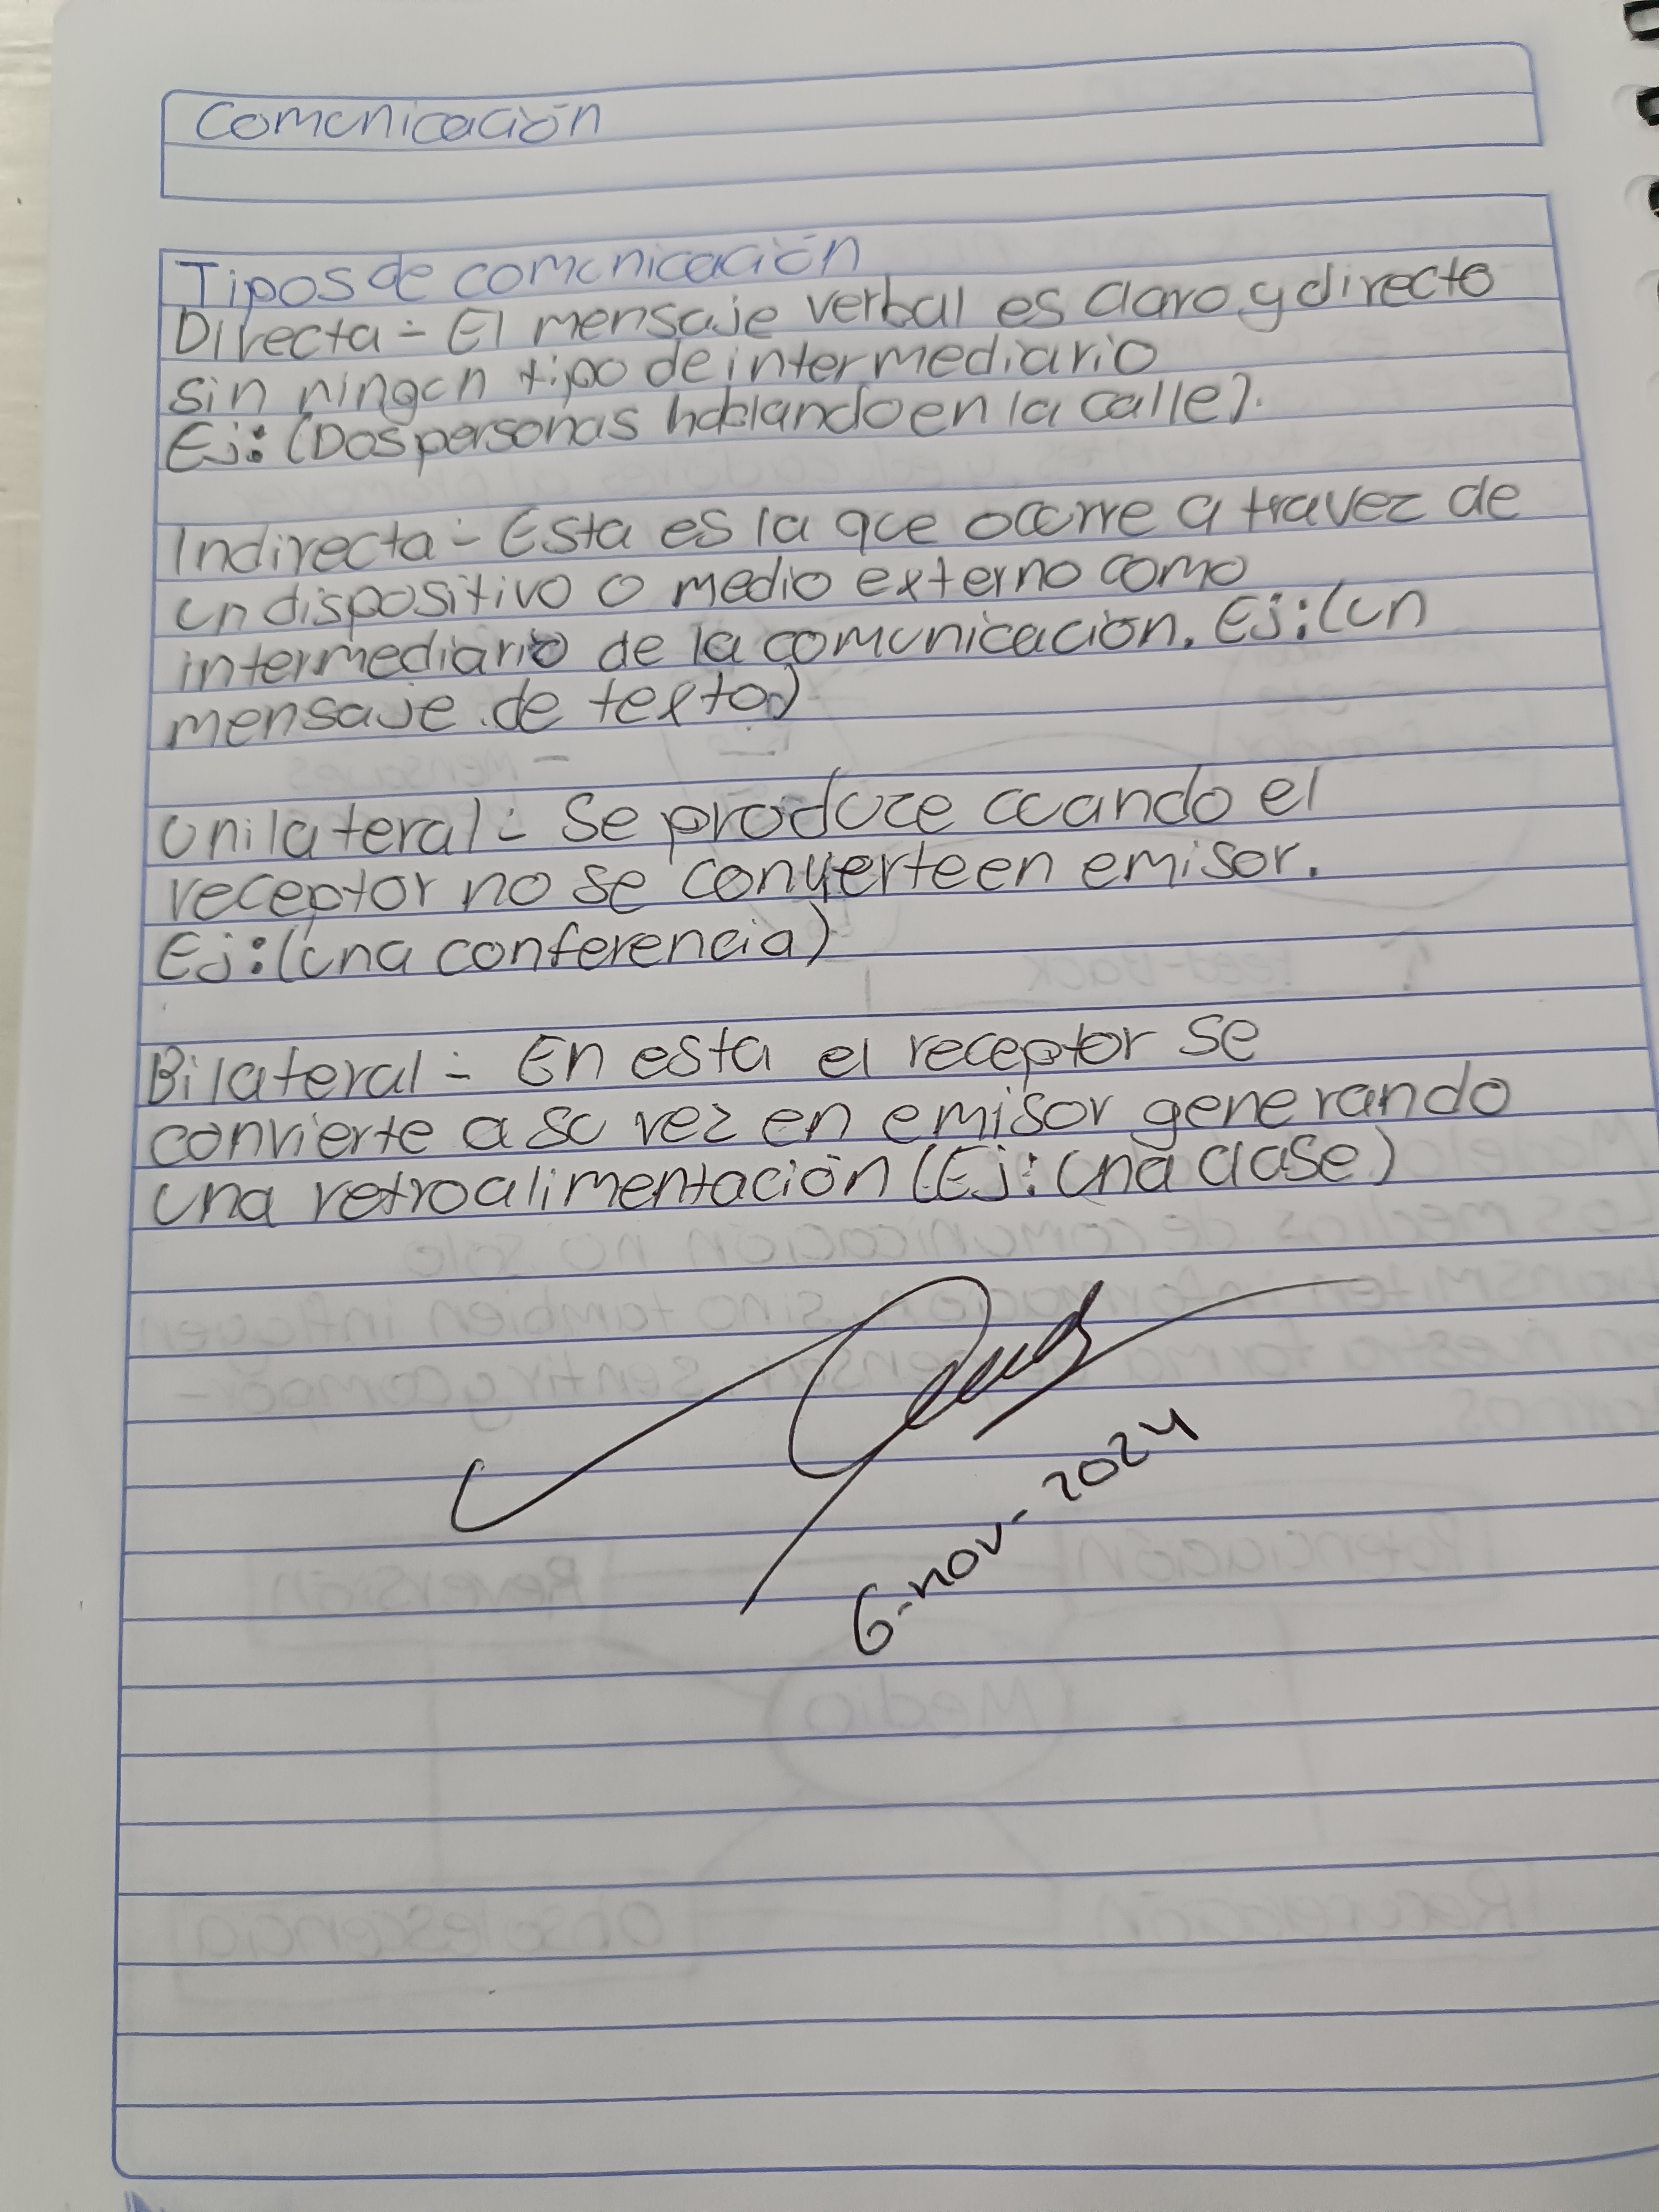 Comunicación
Tipos de comunicación
Directa- El mensaje verbal es claro y directo
sin ningun tipo de intermediario
Ej: (Dos personas hablando en la calle).
Indirecta- Esta es la que ocurre a travez de
un dispositivo o medio externo como
intermediario de la comunicación. Ej: (un
mensaje de texto)
Unilateral- Se produce cuando el
receptor no se convierte en emisor.
Ej: (una conferencia)
Bilateral- En esta el receptor se
convierte a su vez en emisor generando
una retroalimentación (Ej: una clase)
6-nov-2024